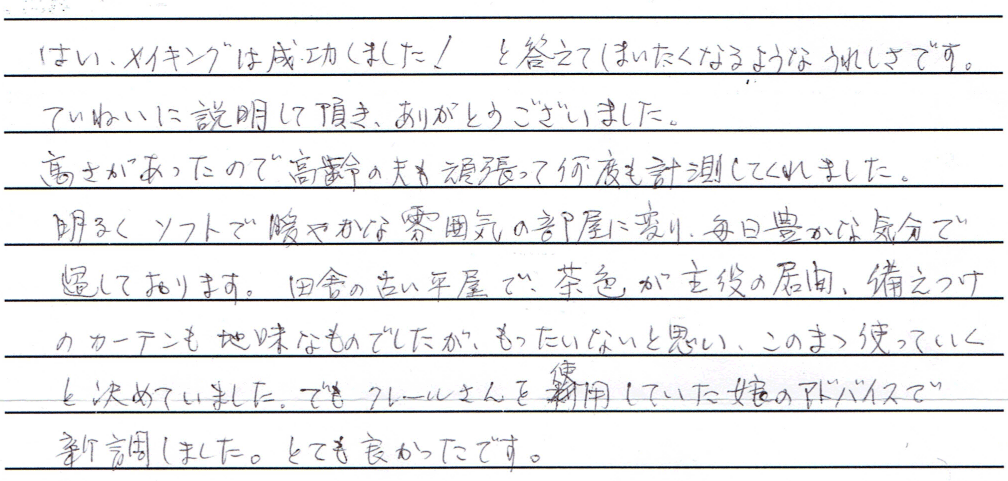 はい、メイキングは成功しました！ と答えてしまいたくなるようなうれしさです。
ていねいに説明して頂き、ありがとうございました。
高さがあったので高齢の夫も頑張って何度も計測してくれました。
明るくソフトで暖やかな雰囲気の部屋に変り、毎日豊かな気分で
過しております。田舎の古い平屋で、茶色が主役の居間、備えつけ
のカーテンも地味なものでしたが、もったいないと思い、このまゝ使っていく
と決めていました。でもクレールさんを使用していた娘のアドバイスで
新調しました。とても良かったです。